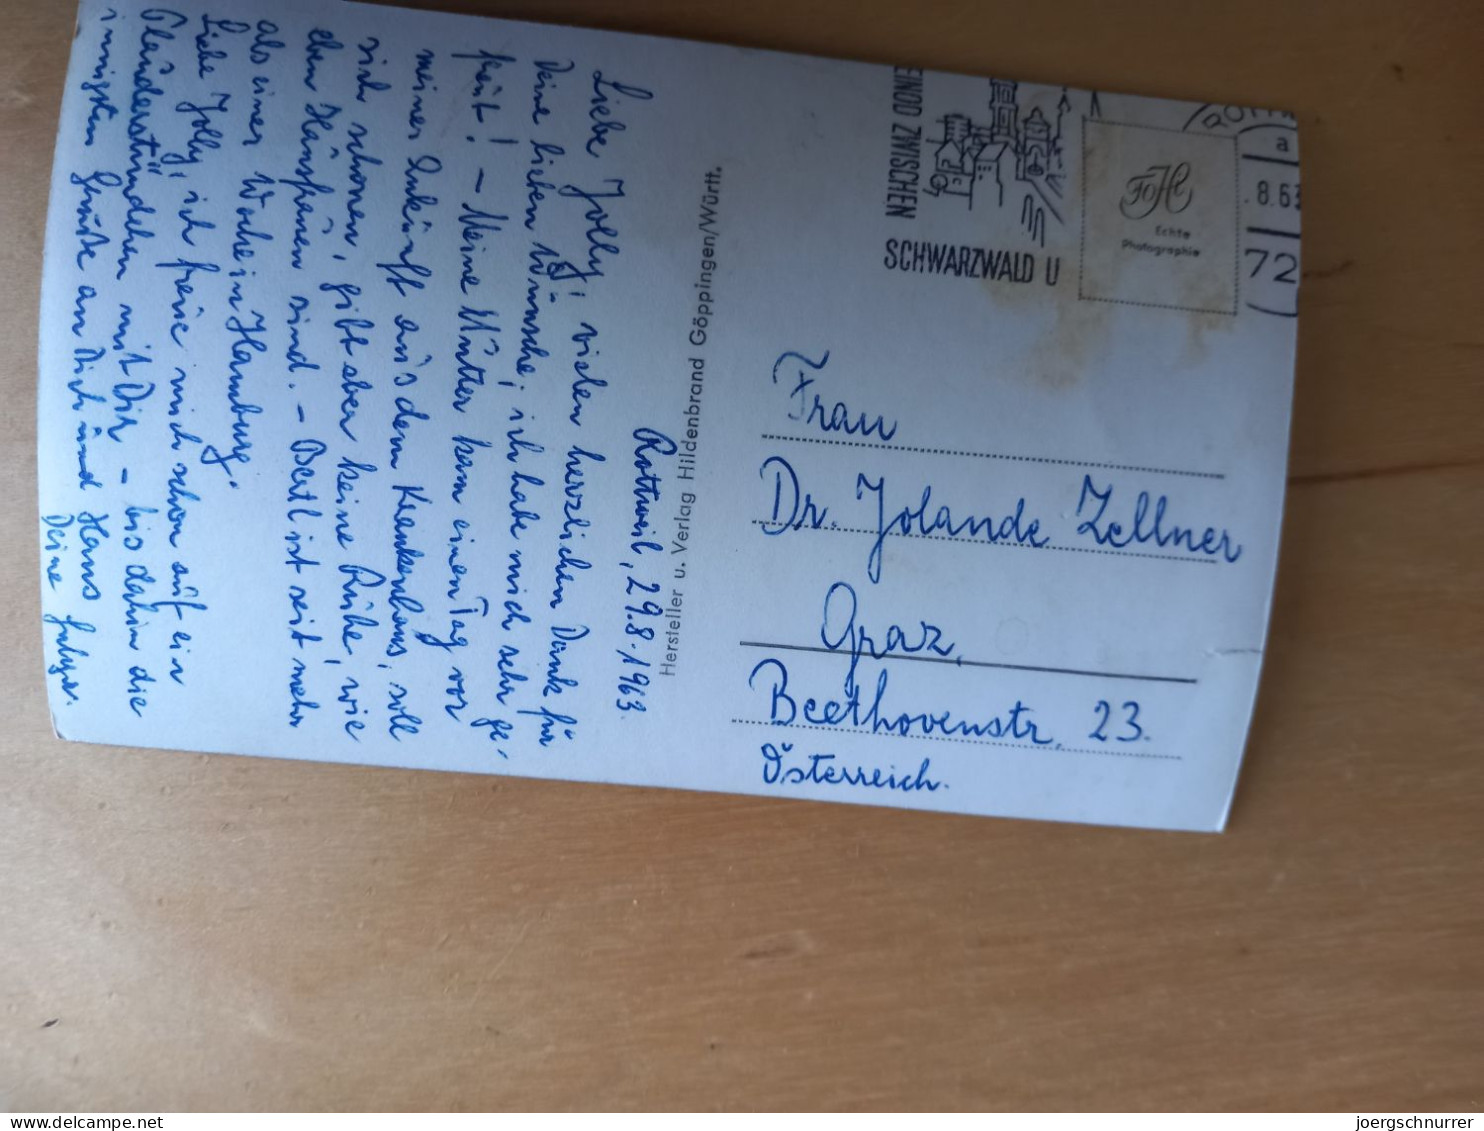 Rottweil, 29.8.1963.
Liebe Jolly, vielen herzlichen Dank für
Deine lieben Wünsche, ich habe mich sehr ge-
freut! – Meine Mutter kam einen Tag vor
meiner Ankunft aus dem Krankenhaus, soll
sich schonen, gibt aber keine Ruhe, wie
eben Hausfrauen sind. – Bertl ist seit mehr
als einer Woche in Hamburg.
Liebe Jolly, ich freue mich schon auf ein
Plauderstündchen mit Dir – bis dahin die
innigsten Grüße an Dich und Hans
Deine
Hersteller u. Verlag Hildenbrand Göppingen/Württ.
EINOD ZWISCHEN
SCHWARZWALD U
ROTTW
a
.8.63
72
FoHi
Echte
Photographie
Frau
Dr. Jolande Zellner
Graz,
Beethovenstr. 23.
Österreich.
delcampe.net
joergschnurrer